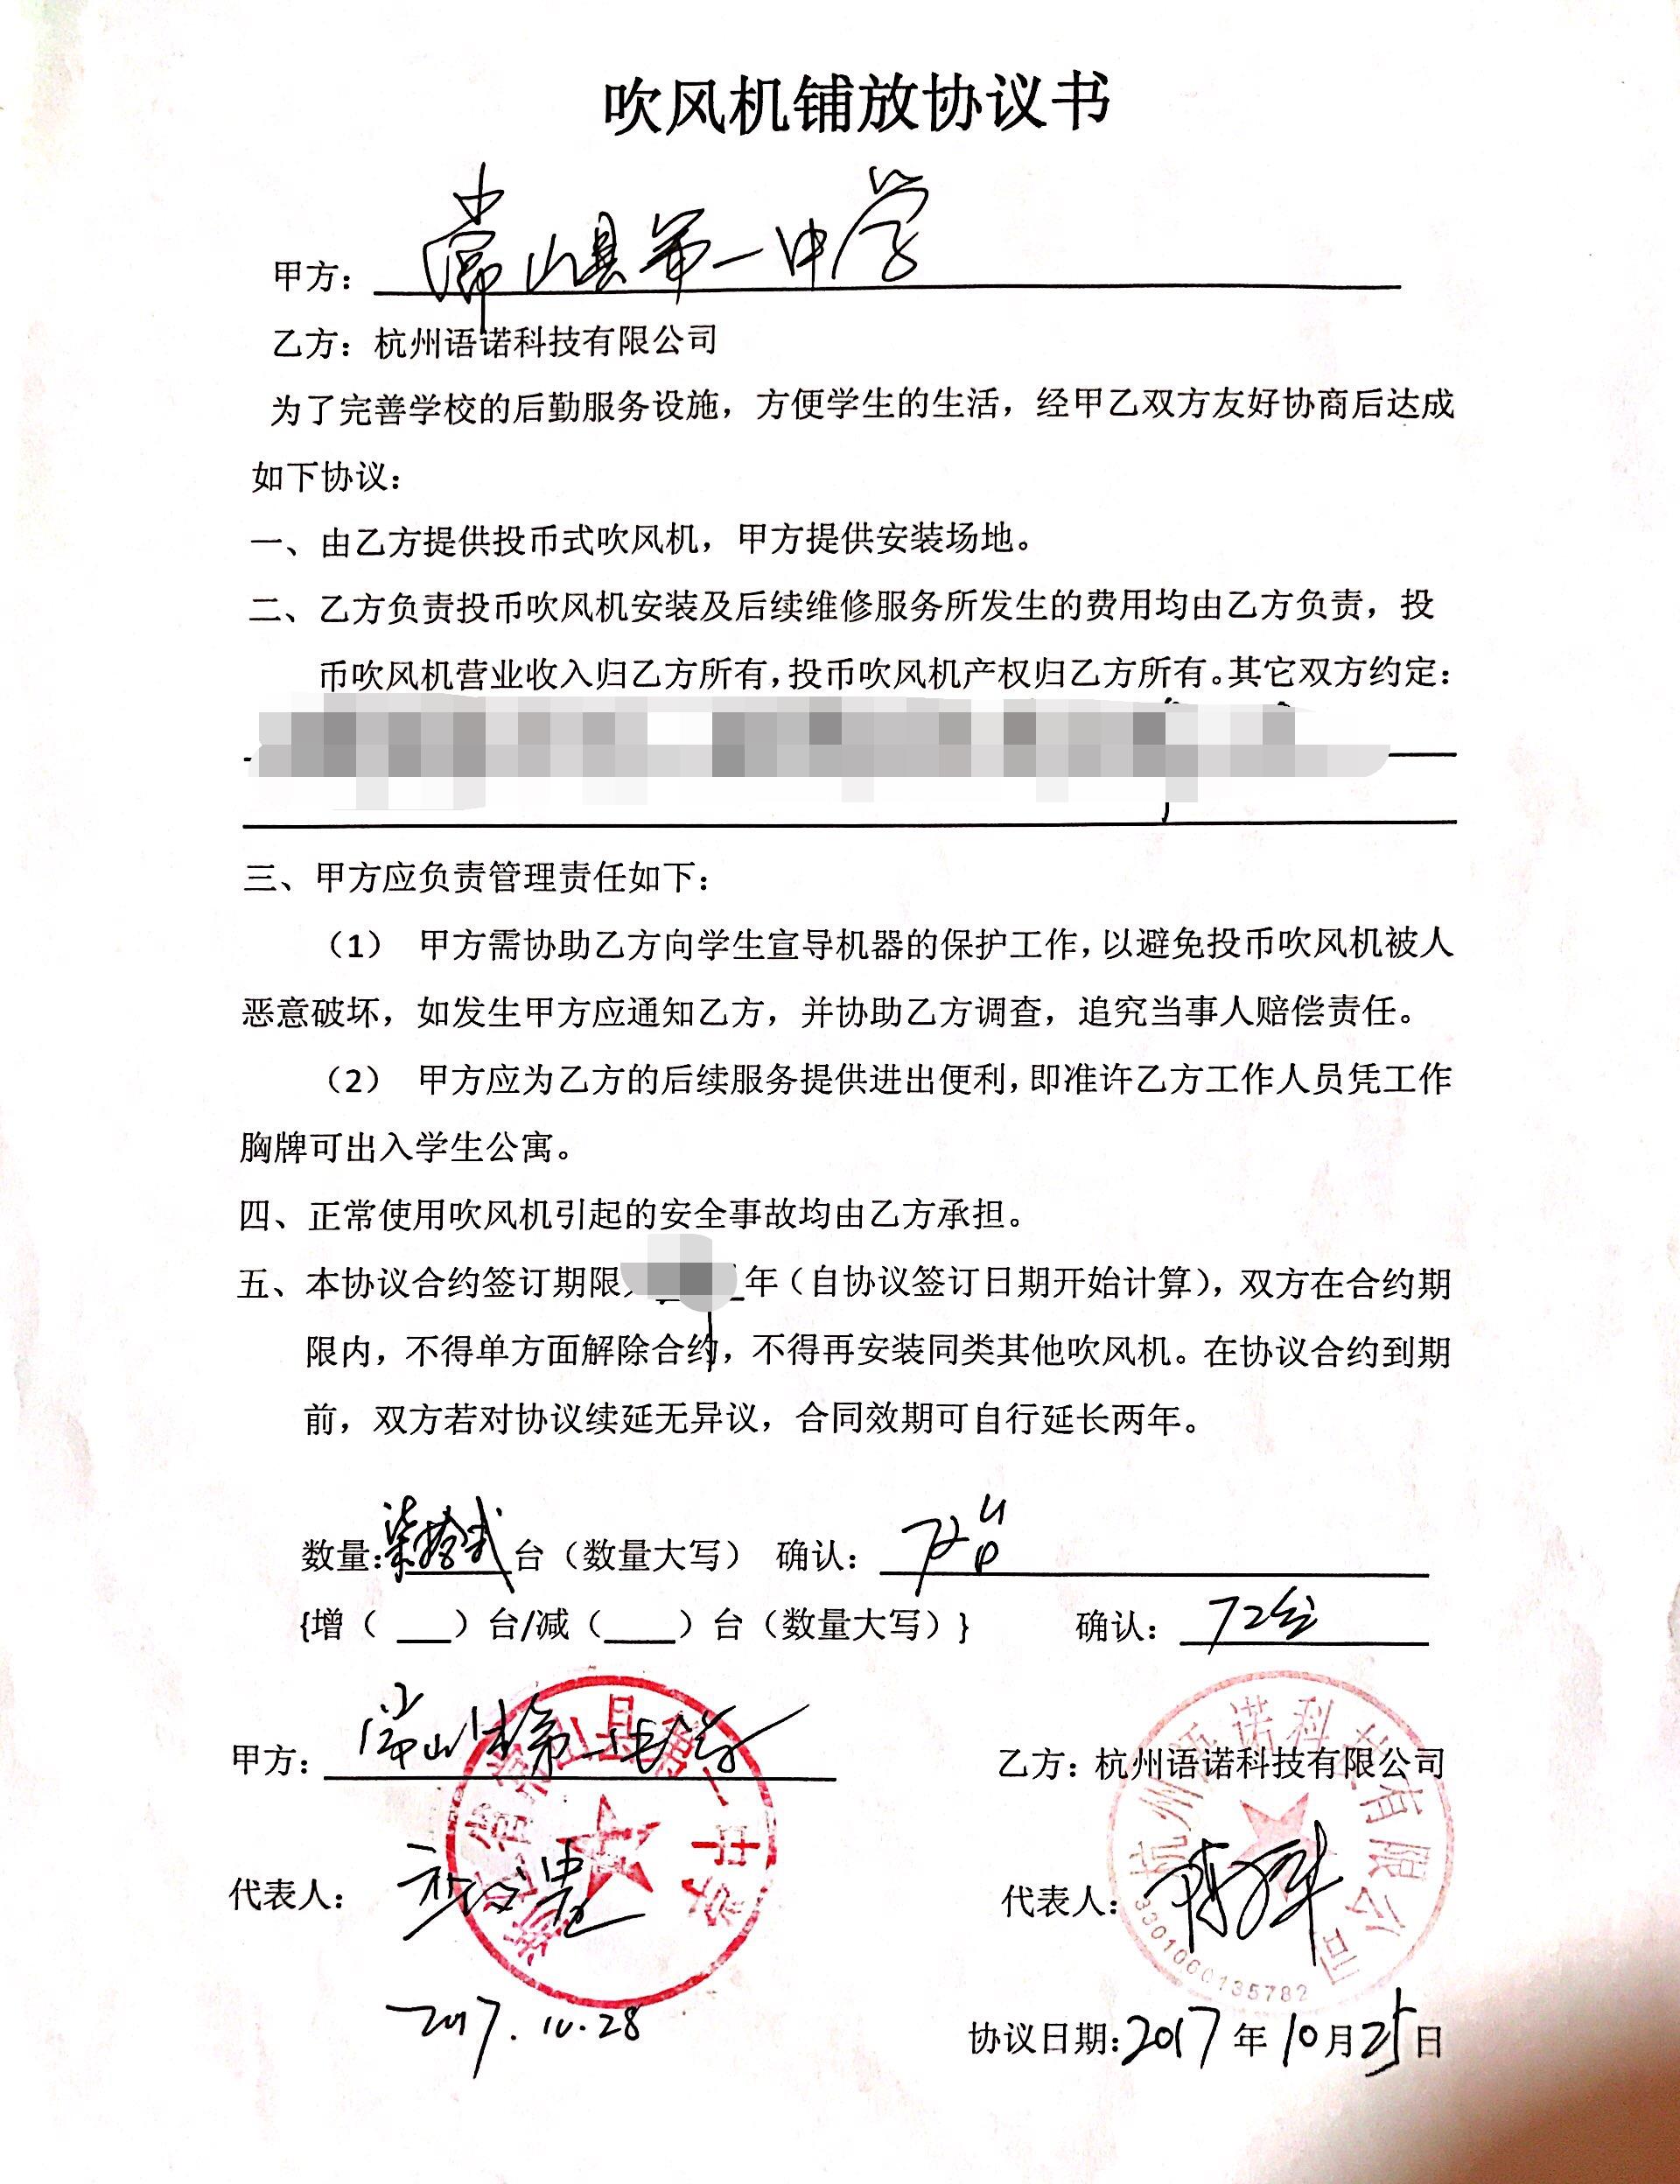 吹风机铺放协议书
甲方：常山县第一中学
乙方：杭州语诺科技有限公司
为了完善学校的后勤服务设施，方便学生的生活，经甲乙双方友好协商后达成
如下协议：
一、由乙方提供投币式吹风机，甲方提供安装场地。
二、乙方负责投币吹风机安装及后续维修服务所发生的费用均由乙方负责，投
币吹风机营业收入归乙方所有，投币吹风机产权归乙方所有。其它双方约定：
三、甲方应负责管理责任如下：
（1） 甲方需协助乙方向学生宣导机器的保护工作，以避免投币吹风机被人
恶意破坏，如发生甲方应通知乙方，并协助乙方调查，追究当事人赔偿责任。
（2） 甲方应为乙方的后续服务提供进出便利，即准许乙方工作人员凭工作
胸牌可出入学生公寓。
四、正常使用吹风机引起的安全事故均由乙方承担。
五、本协议合约签订期限 年（自协议签订日期开始计算），双方在合约期
限内，不得单方面解除合约，不得再安装同类其他吹风机。在协议合约到期
前，双方若对协议续延无异议，合同效期可自行延长两年。
数量：柒拾贰台（数量大写） 确认：
{增（ ___）台/减（____）台（数量大写）} 确认：72台
甲方：常山县第一中学 乙方：杭州语诺科技有限公司
浙江省常山县第一中学
杭州语诺科技有限公司
3301060135782
代表人： 代表人：
2017.10.28 协议日期：2017年10月25日